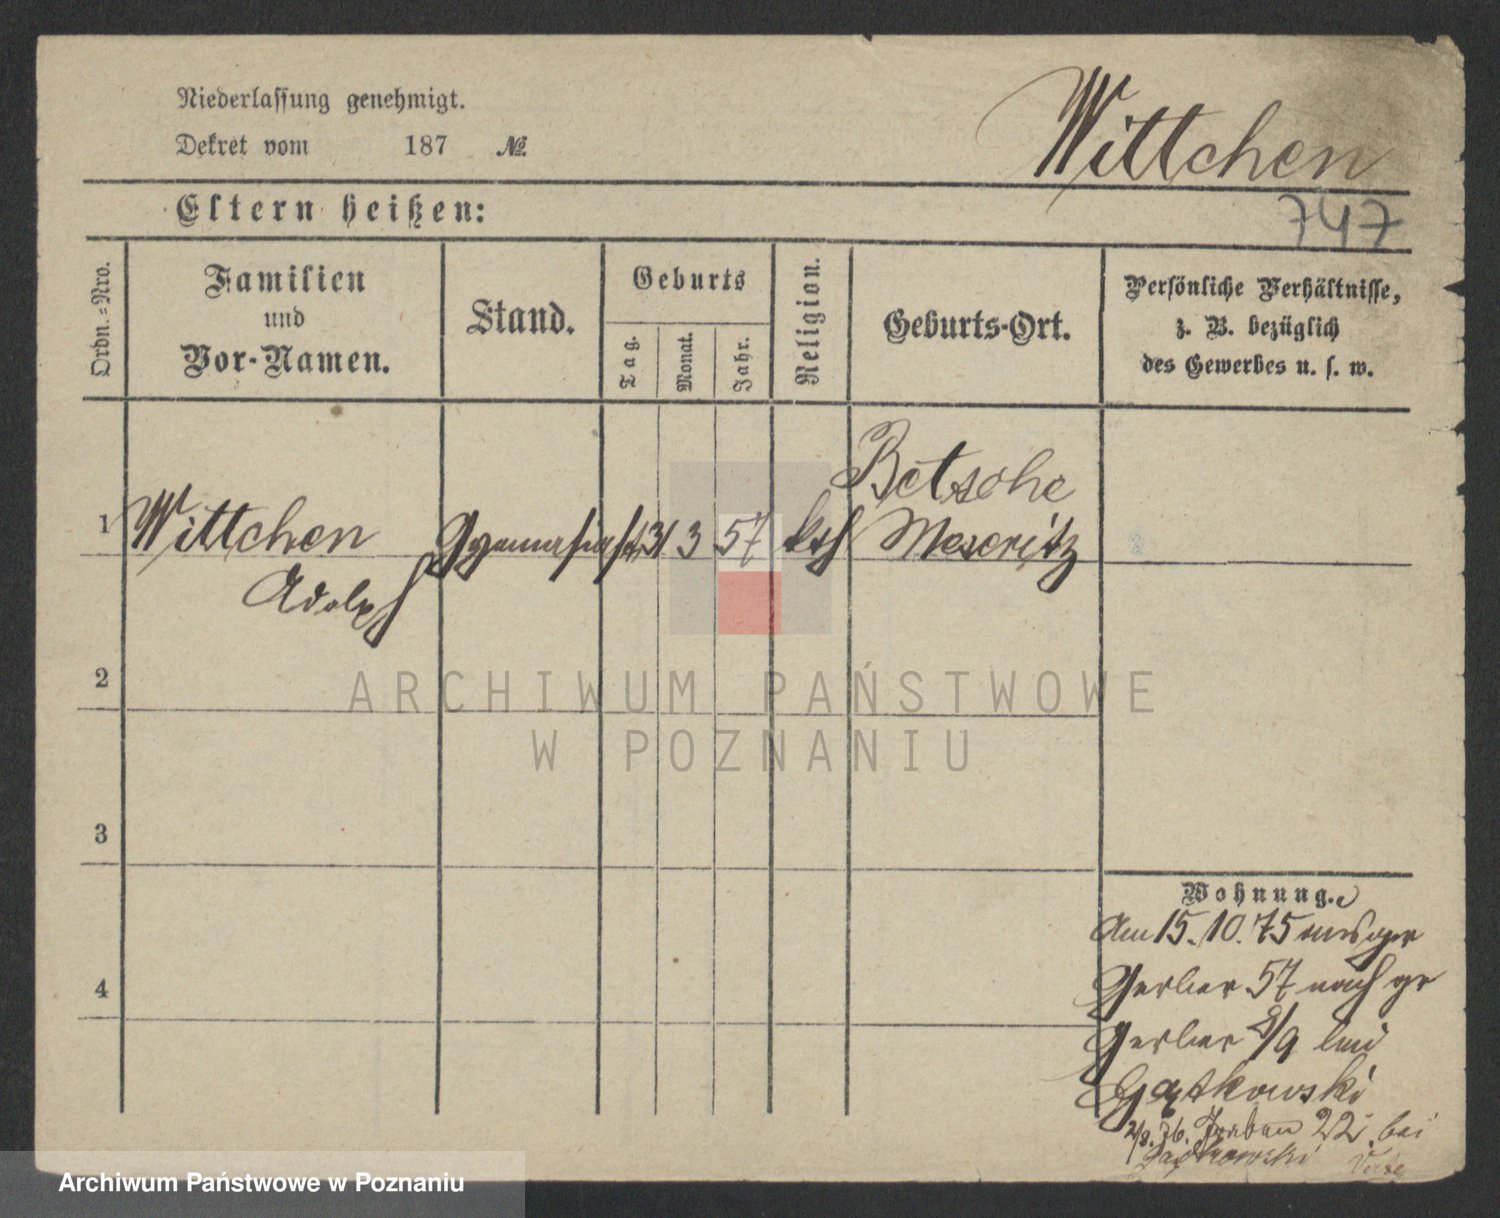 Niederlassung genehmigt.
Dekret vom 187 №.
Wittchen
Eltern heißen:
747
Ordn.-Nro.
Familien
und
Vor-Namen.
Stand.
Geburts
Tag.
Monat.
Jahr.
Religion.
Geburts-Ort.
Persönliche Verhältnisse,
z. B. bezüglich
des Gewerbes u. s. w.
Betsche
1 Wittchen Gymnasiast 31 3 57 kth Meseritz
Adolph
2
ARCHIWUM PAŃSTWOWE
W POZNANIU
3
Wohnung.
Am 15. 10. 75
Gerber 57 nach gr
4
Gerber 8/9 bei
Gątkowski
Graben 22 bei
Archiwum Państwowe w Poznaniu